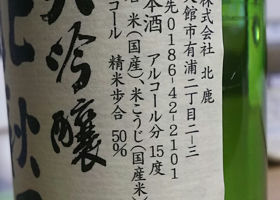 株式会社 北鹿
大館市有浦二丁目二−三
先0186-42-2101
本酒 アルコール分15度
米(国産)、米こうじ(国産米)
コール 精米歩合 50%
大吟醸
北秋